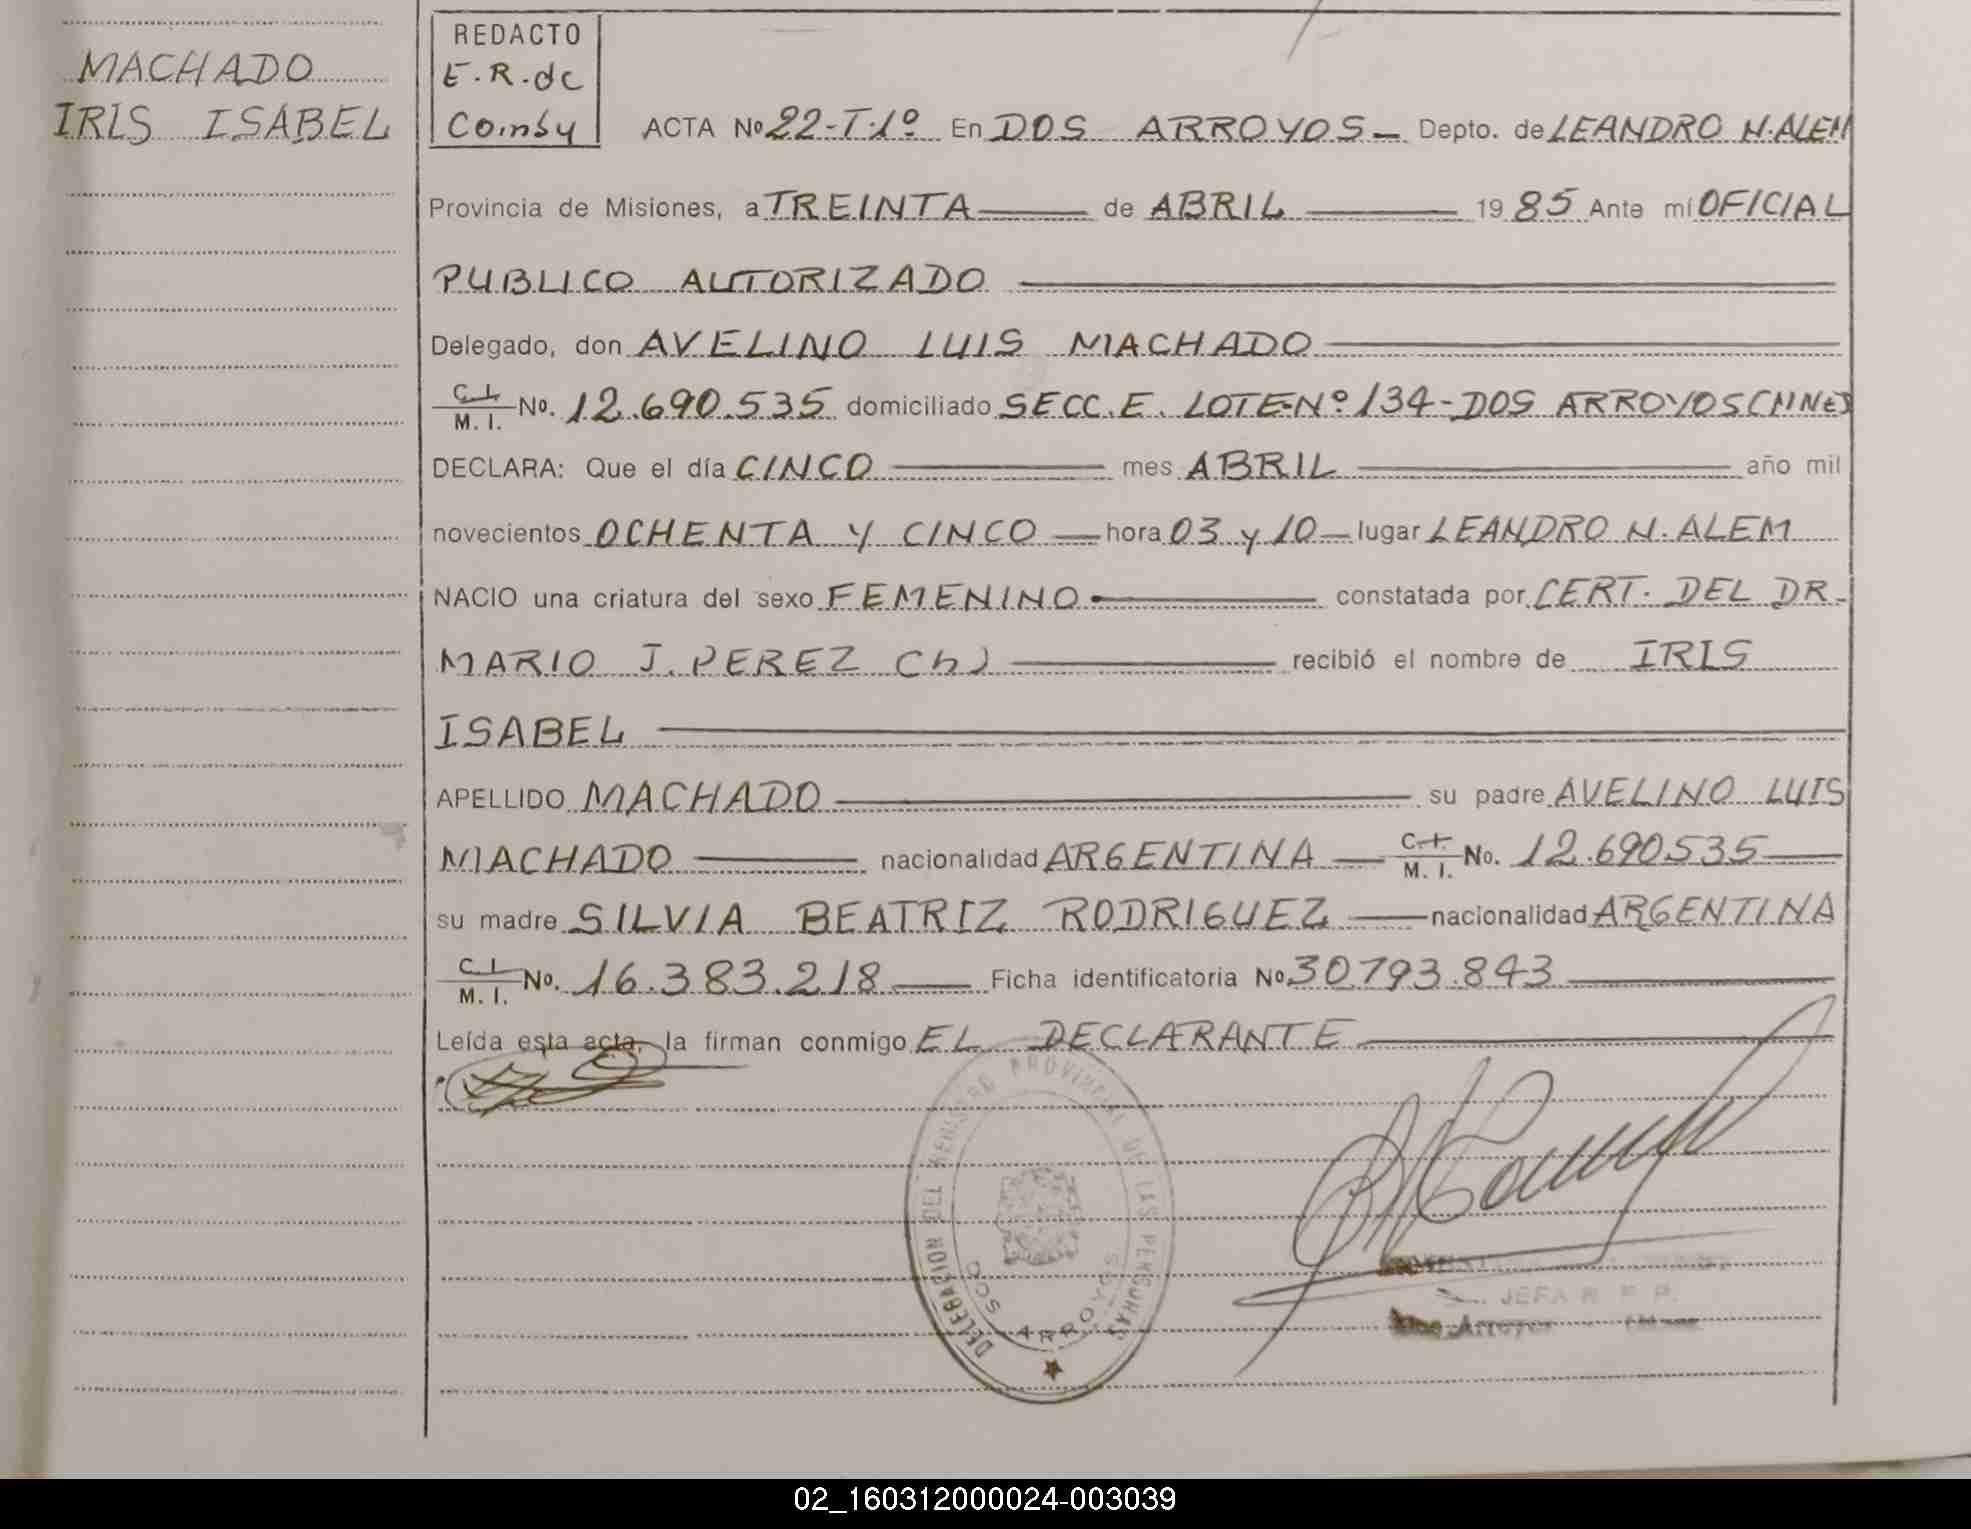 MACHADO
IRIS ISABEL
REDACTO
E.R.dc
Coinby
ACTA No 22-T.1º En DOS ARROYOS Depto. de LEANDRO N. ALEM
Provincia de Misiones, a TREINTA de ABRIL 1985 Ante mí OFICIAL
PUBLICO AUTORIZADO
Delegado, don AVELINO LUIS MACHADO
C.I. M.I. No. 12.690.535 domiciliado SECC.E. LOTE-Nº 134-DOS ARROYOS(MNES)
DECLARA: Que el día CINCO mes ABRIL año mil
novecientos OCHENTA Y CINCO hora 03 y 10 lugar LEANDRO N. ALEM
NACIO una criatura del sexo FEMENINO constatada por CERT. DEL DR.
MARIO J. PEREZ (h) recibió el nombre de IRIS
ISABEL
APELLIDO MACHADO su padre AVELINO LUIS
MACHADO nacionalidad ARGENTINA C.I. M.I. No. 12.690535
su madre SILVIA BEATRIZ RODRIGUEZ nacionalidad ARGENTINA
C.I. M.I. No. 16.383.218 Ficha identificatoria No 30793.843
Leída esta acta, la firman conmigo EL DECLARANTE
DELEGACION DEL REGISTRO PROVINCIAL DE LAS PERSONAS
DOS ARROYOS
JEFA R. P. P.
Dos Arroyos
02_160312000024-003039